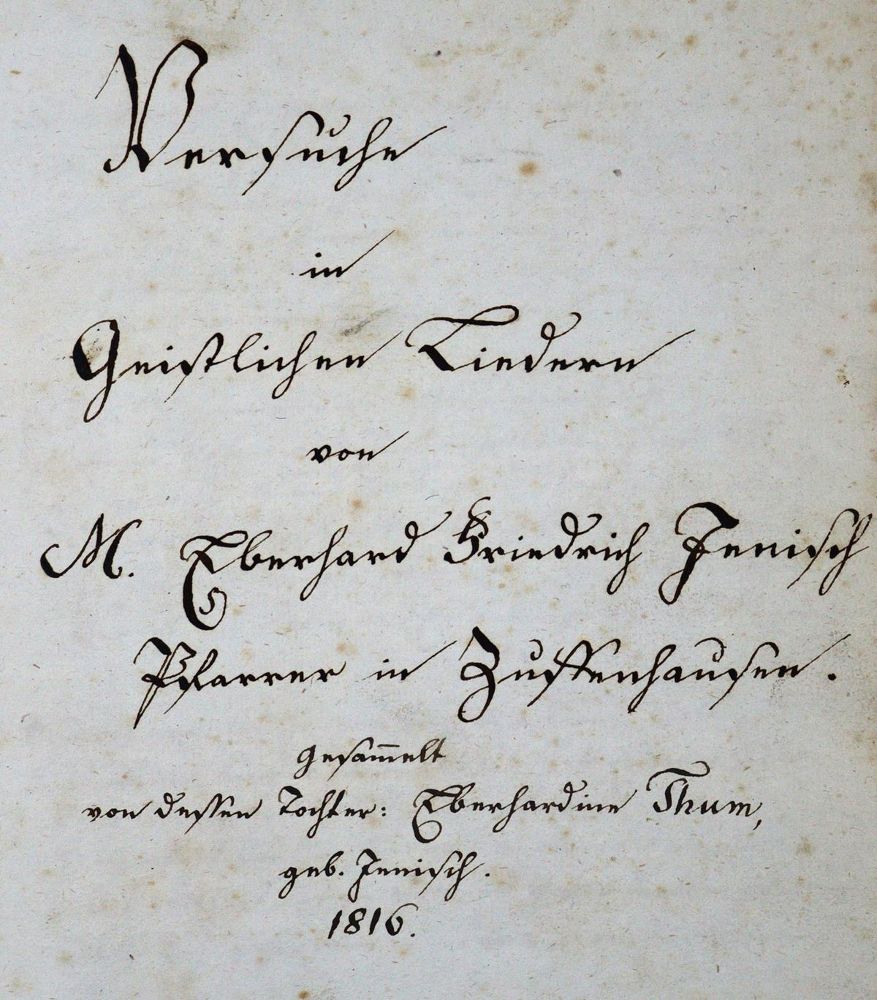 Versuche
in
Geistlichen Liedern
von
M. Eberhard Friedrich Jenisch
Pfarrer in Zuffenhausen.
gesam̄elt
von dessen Tochter: Eberhardine Thum,
geb. Jenisch.
1816.